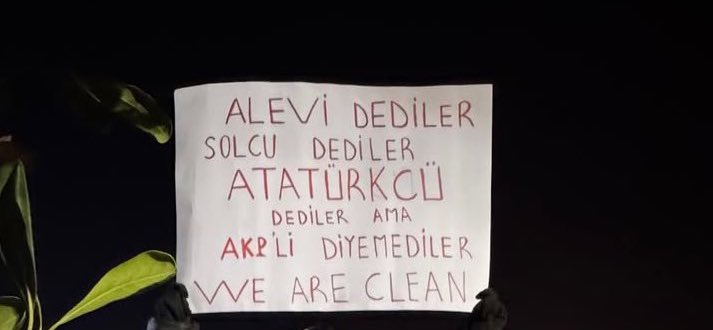 ALEVİ DEDİLER
SOLCU DEDİLER
ATATÜRKCÜ
DEDİLER AMA
AKP'Lİ DİYEMEDİLER
WE ARE CLEAN